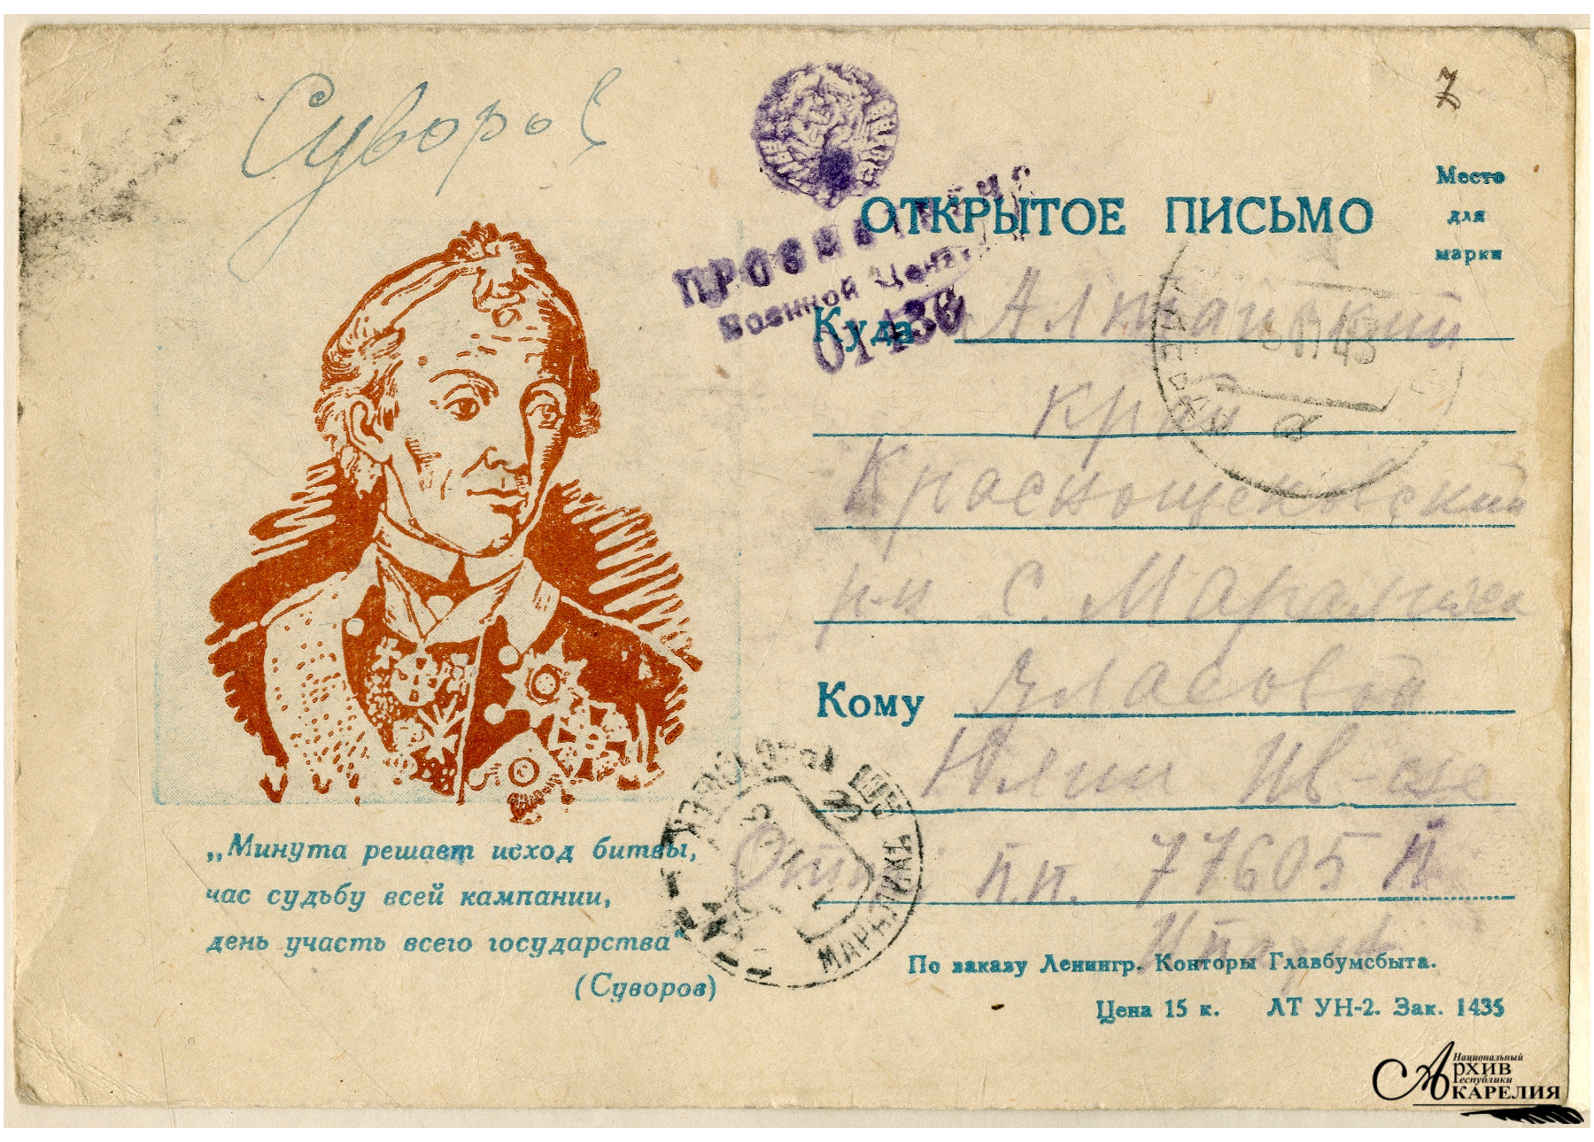 Суворов
7
ОТКРЫТОЕ ПИСЬМО
Место
для
марки
Военной
01436
Куда Алтайский
край
Краснощековский
р-н с. Маралиха
Кому Власовой
Юлии Ив-не
п.п. 77605 Й
„Минута решает исход битвы,
час судьбу всей кампании,
день участь всего государства“
(Суворов)
По заказу Ленингр. Конторы Главбумсбыта.
Цена 15 к. ЛТ УН-2. Зак. 1435
Национальный
АРХИВ
Республики
КАРЕЛИЯ